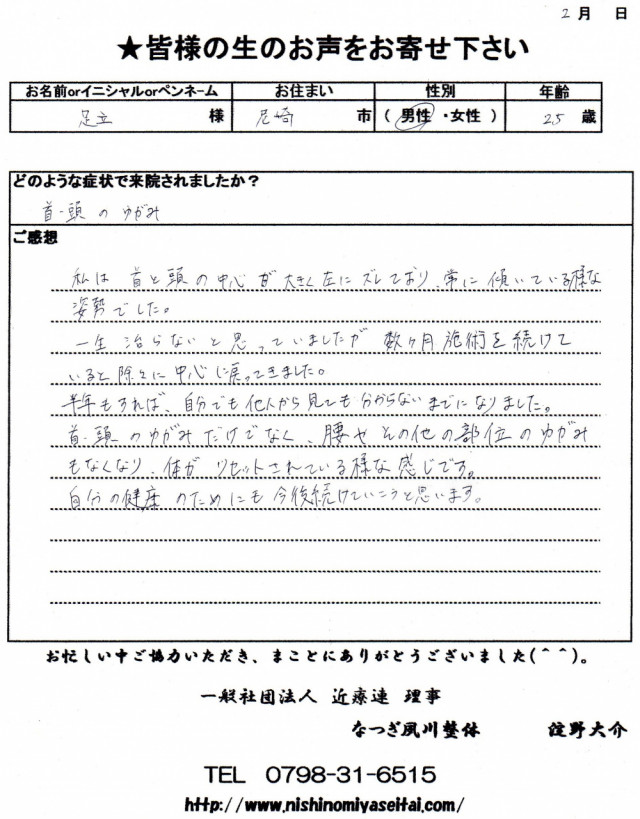 2月 日
★皆様の生のお声をお寄せ下さい
お名前orイニシャルorペンネーム お住まい 性別 年齢
足立 様 尼崎 市 (男性・女性) 25 歳
どのような症状で来院されましたか?
首・頭のゆがみ
ご感想
私は首と頭の中心が大きく左にズレており、常に傾いている様な
姿勢でした。
一生治らないと思っていましたが数ヶ月施術を続けて
いると除々に中心に戻ってきました。
半年もすれば、自分でも他人から見ても分からないまでになりました。
首・頭のゆがみだけでなく、腰やその他の部位のゆがみ
もなくなり、体がリセットされている様な感じです。
自分の健康のためにも今後続けていこうと思います。
お忙しい中ご協力いただき、まことにありがとうございました(^^)。
一般社団法人 近療連 理事
なつぎ夙川整体 淀野大介
TEL 0798-31-6515
http://www.nishinomiyaseitai.com/